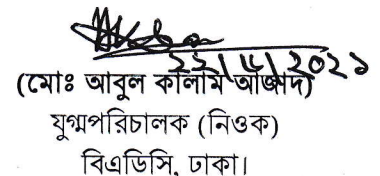 ২২/৮/২০২১
(মোঃ আবুল কালাম আজাদ)
যুগ্মপরিচালক (নিওক)
বিএডিসি, ঢাকা।